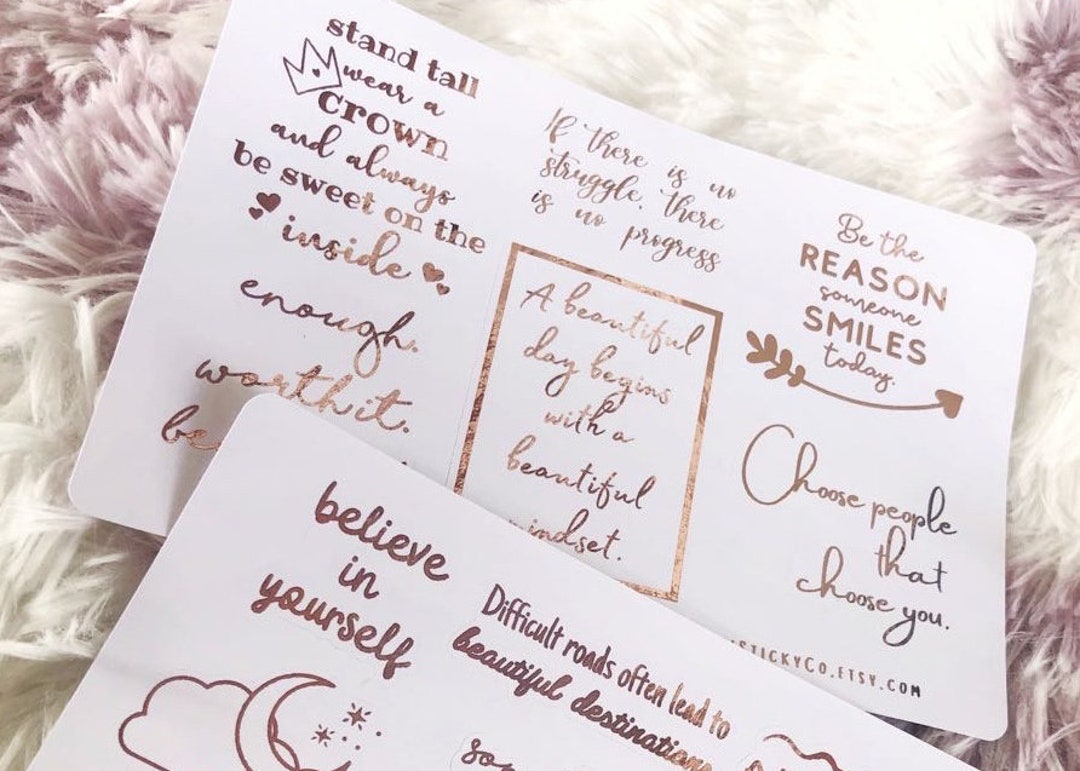 stand tall
wear a
crown
and always
be sweet on the
inside
enough.
worth it.
If there is no
struggle, there
is no progress
A beautiful
day begins
with a
beautiful
mindset.
Be the
REASON
someone
SMILES
today.
Choose people
that
choose you.
STICKYCO.ETSY.COM
believe
in
yourself
Difficult roads often lead to
beautiful destinations